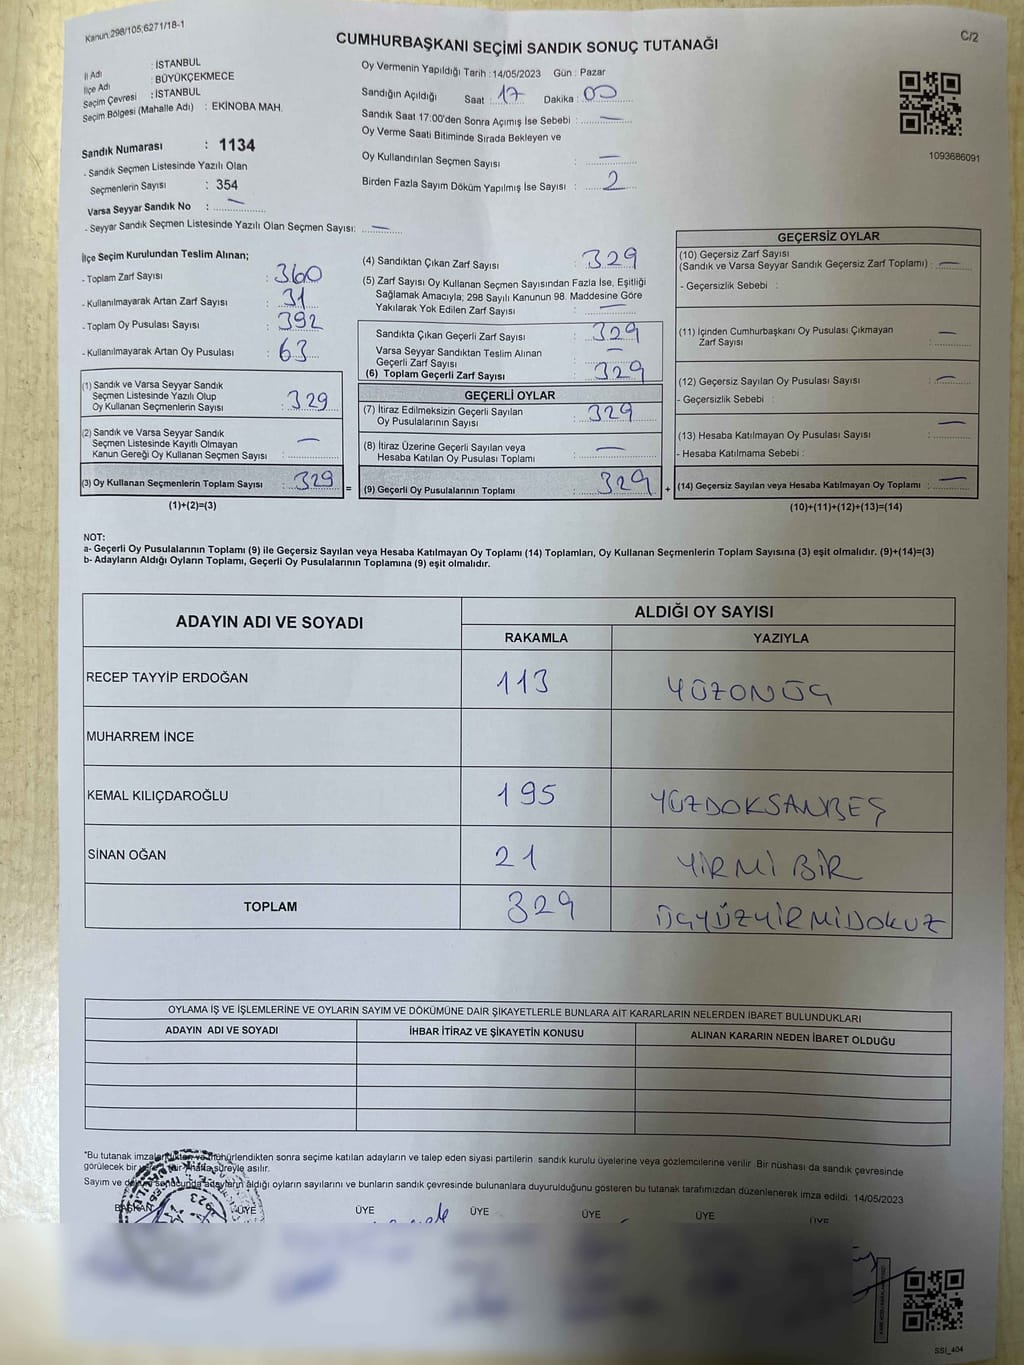 Kanun:298/105,6271/18-1
C/2
CUMHURBAŞKANI SEÇİMİ SANDIK SONUÇ TUTANAĞI
İl Adı : İSTANBUL
İlçe Adı : BÜYÜKÇEKMECE
Seçim Çevresi : İSTANBUL
Seçim Bölgesi (Mahalle Adı) : EKİNOBA MAH.
Sandık Numarası : 1134
- Sandık Seçmen Listesinde Yazılı Olan
Seçmenlerin Sayısı : 354
Varsa Seyyar Sandık No : —
- Seyyar Sandık Seçmen Listesinde Yazılı Olan Seçmen Sayısı: —
Oy Vermenin Yapıldığı Tarih :14/05/2023 Gün : Pazar
Sandığın Açıldığı Saat : 17 Dakika : 00
Sandık Saat 17:00'den Sonra Açımış İse Sebebi : —
Oy Verme Saati Bitiminde Sırada Bekleyen ve
Oy Kullandırılan Seçmen Sayısı : —
Birden Fazla Sayım Döküm Yapılmış İse Sayısı : 2
1093686091
İlçe Seçim Kurulundan Teslim Alınan;
- Toplam Zarf Sayısı : 360
- Kullanılmayarak Artan Zarf Sayısı : 31
- Toplam Oy Pusulası Sayısı : 392
- Kullanılmayarak Artan Oy Pusulası : 63
(1) Sandık ve Varsa Seyyar Sandık
Seçmen Listesinde Yazılı Olup
Oy Kullanan Seçmenlerin Sayısı : 329
(2) Sandık ve Varsa Seyyar Sandık
Seçmen Listesinde Kayıtlı Olmayan
Kanun Gereği Oy Kullanan Seçmen Sayısı : —
(3) Oy Kullanan Seçmenlerin Toplam Sayısı : 329 =
(1)+(2)=(3)
(4) Sandıktan Çıkan Zarf Sayısı : 329
(5) Zarf Sayısı Oy Kullanan Seçmen Sayısından Fazla İse, Eşitliği
Sağlamak Amacıyla; 298 Sayılı Kanunun 98. Maddesine Göre
Yakılarak Yok Edilen Zarf Sayısı : —
Sandıkta Çıkan Geçerli Zarf Sayısı : 329
Varsa Seyyar Sandıktan Teslim Alınan
Geçerli Zarf Sayısı : —
(6) Toplam Geçerli Zarf Sayısı : 329
GEÇERLİ OYLAR
(7) İtiraz Edilmeksizin Geçerli Sayılan
Oy Pusulalarının Sayısı : 329
(8) İtiraz Üzerine Geçerli Sayılan veya
Hesaba Katılan Oy Pusulası Toplamı : —
(9) Geçerli Oy Pusulalarının Toplamı : 329 +
GEÇERSİZ OYLAR
(10) Geçersiz Zarf Sayısı
(Sandık ve Varsa Seyyar Sandık Geçersiz Zarf Toplamı) : —
- Geçersizlik Sebebi :
(11) İçinden Cumhurbaşkanı Oy Pusulası Çıkmayan
Zarf Sayısı : —
(12) Geçersiz Sayılan Oy Pusulası Sayısı : —
- Geçersizlik Sebebi :
(13) Hesaba Katılmayan Oy Pusulası Sayısı : —
- Hesaba Katılmama Sebebi :
(14) Geçersiz Sayılan veya Hesaba Katılmayan Oy Toplamı : —
(10)+(11)+(12)+(13)=(14)
NOT:
a- Geçerli Oy Pusulalarının Toplamı (9) ile Geçersiz Sayılan veya Hesaba Katılmayan Oy Toplamı (14) Toplamları, Oy Kullanan Seçmenlerin Toplam Sayısına (3) eşit olmalıdır. (9)+(14)=(3)
b- Adayların Aldığı Oyların Toplamı, Geçerli Oy Pusulalarının Toplamına (9) eşit olmalıdır.
ADAYIN ADI VE SOYADI
ALDIĞI OY SAYISI
RAKAMLA YAZIYLA
RECEP TAYYİP ERDOĞAN 113 YÜZONÜÇ
MUHARREM İNCE
KEMAL KILIÇDAROĞLU 195 YÜZDOKSANBEŞ
SİNAN OĞAN 21 YİRMİ BİR
TOPLAM 329 ÜÇYÜZYİRMİDOKUZ
OYLAMA İŞ VE İŞLEMLERİNE VE OYLARIN SAYIM VE DÖKÜMÜNE DAİR ŞİKAYETLERLE BUNLARA AİT KARARLARIN NELERDEN İBARET BULUNDUKLARI
ADAYIN ADI VE SOYADI İHBAR İTİRAZ VE ŞİKAYETİN KONUSU ALINAN KARARIN NEDEN İBARET OLDUĞU
*Bu tutanak imzalandıktan ve mühürlendikten sonra seçime katılan adayların ve talep eden siyasi partilerin sandık kurulu üyelerine veya gözlemcilerine verilir. Bir nüshası da sandık çevresinde
görülecek bir yere bir hafta süreyle asılır.
Sayım ve döküm sonucunda adayların aldığı oyların sayılarını ve bunların sandık çevresinde bulunanlara duyurulduğunu gösteren bu tutanak tarafımızdan düzenlenerek imza edildi. 14/05/2023
BAŞKAN ÜYE ÜYE ÜYE ÜYE ÜYE ÜYE
SSI_404